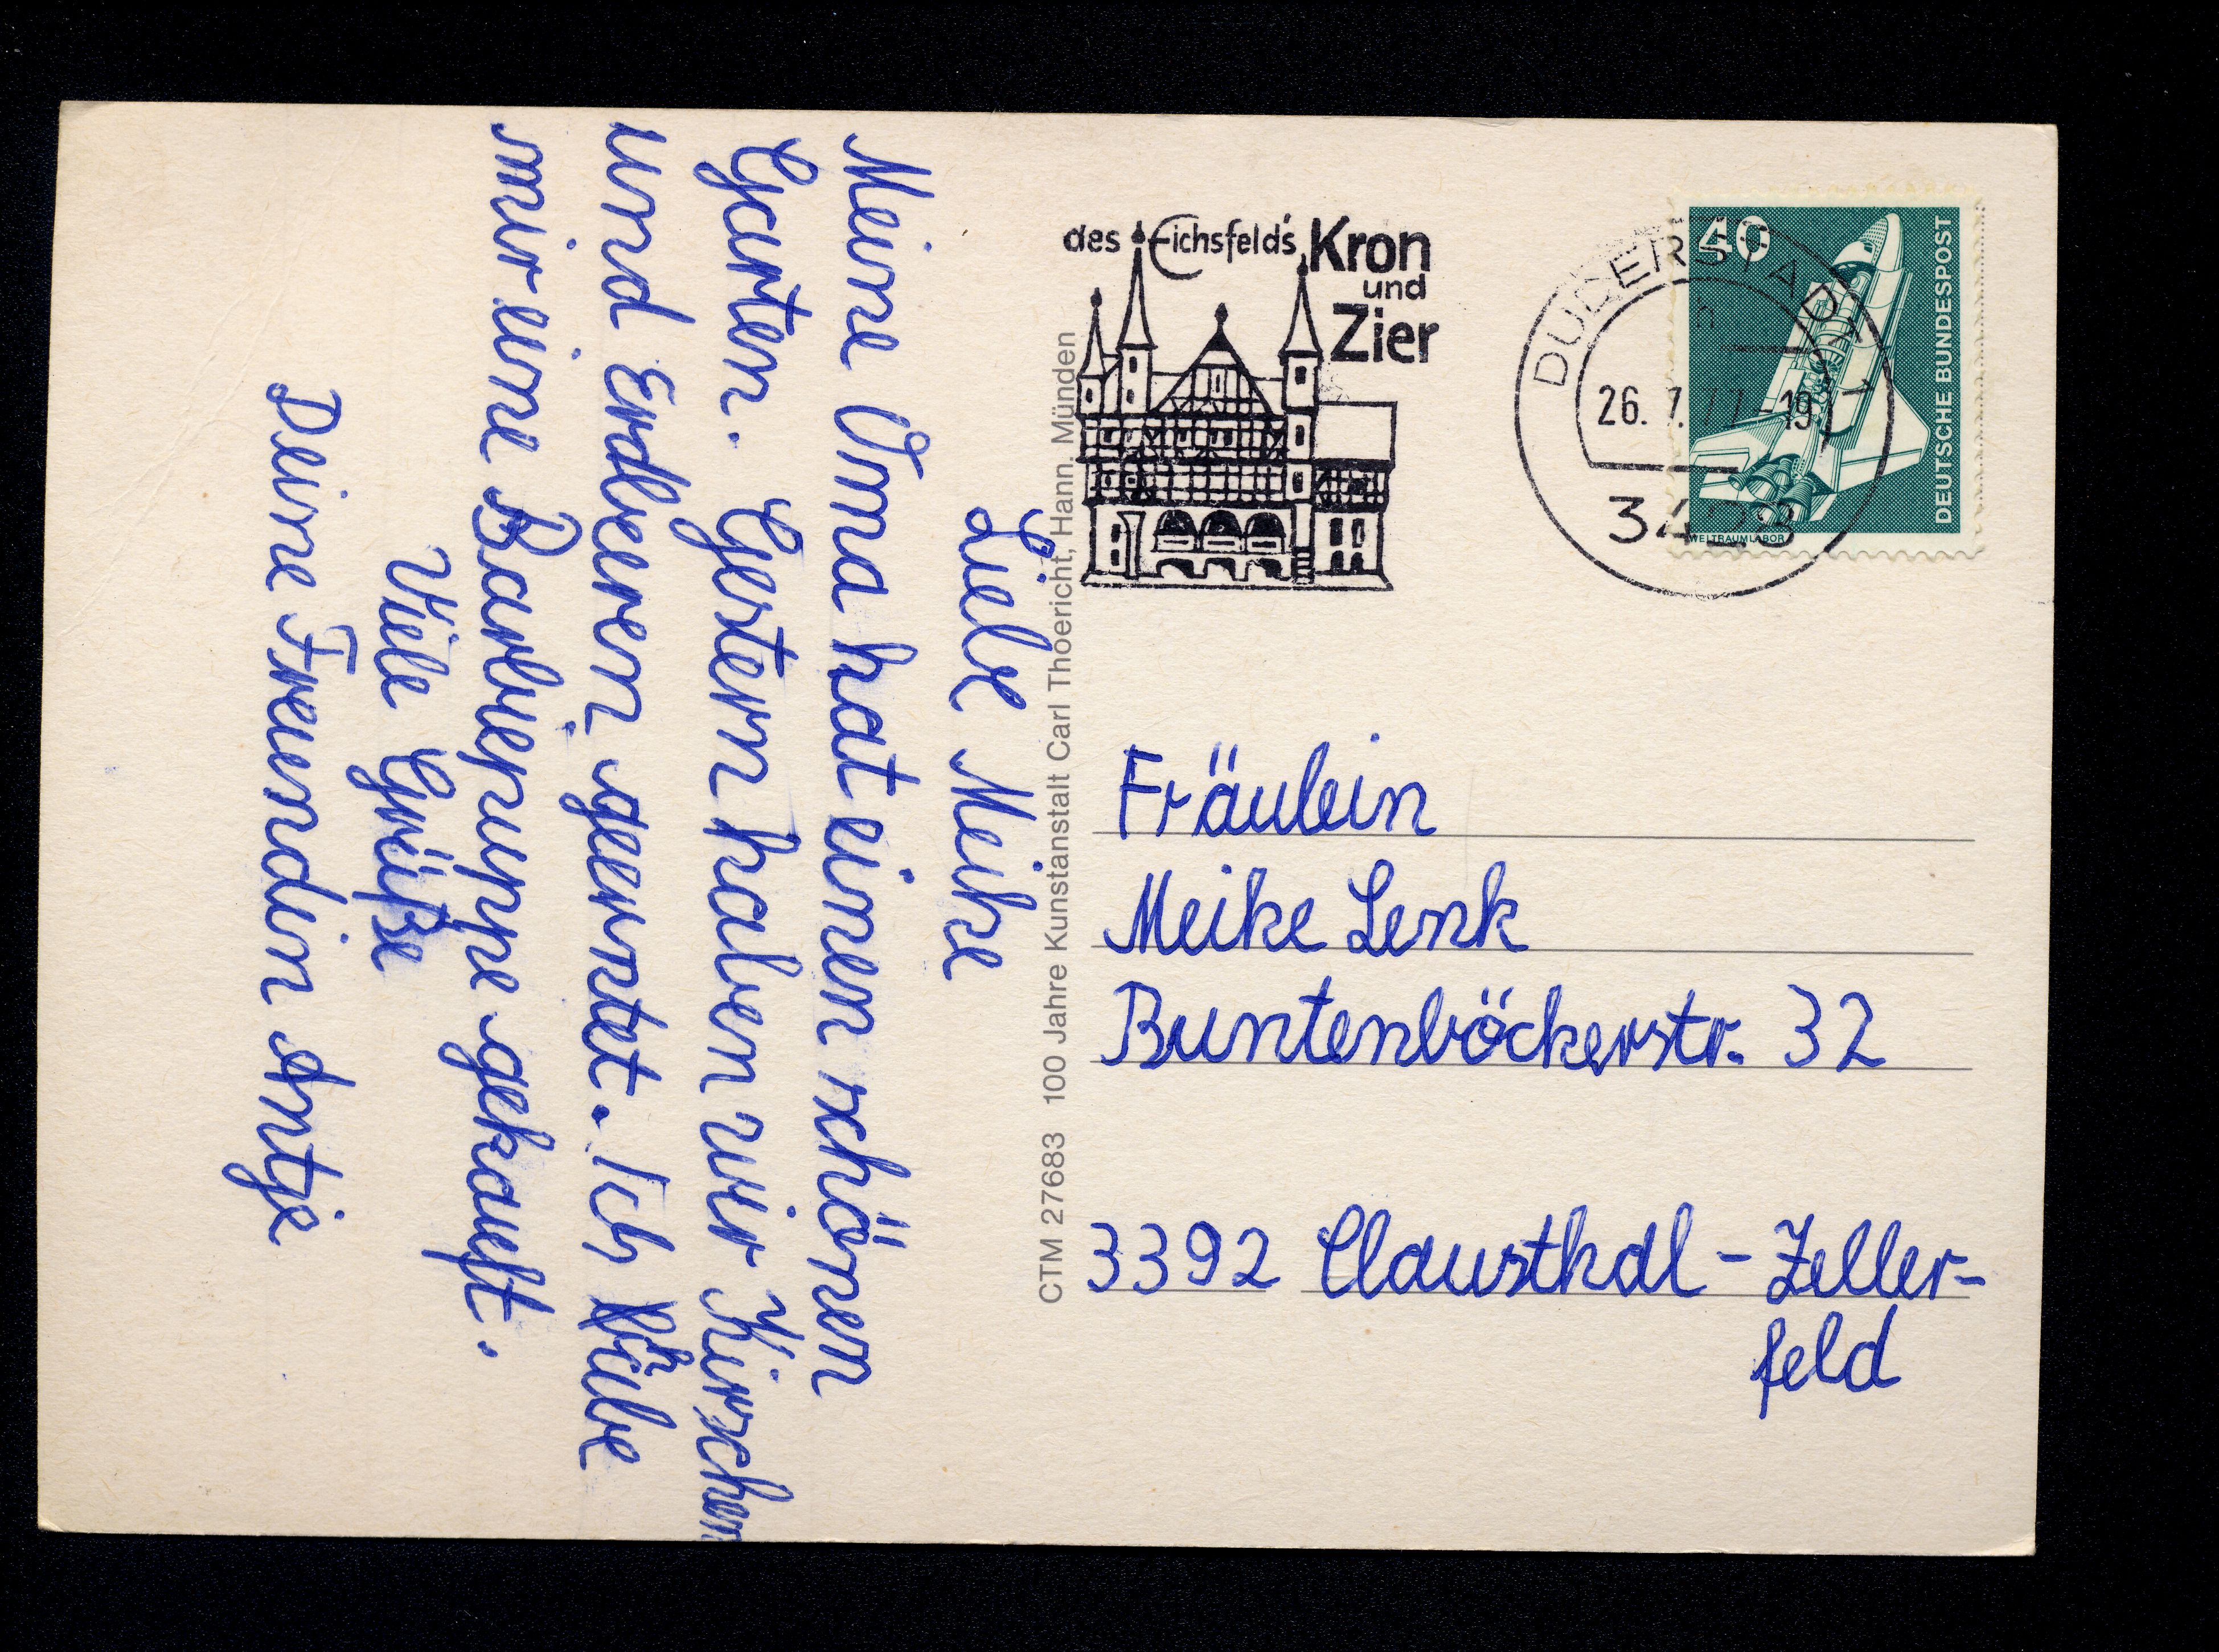 Liebe Meike
Meine Oma hat einen schönen
Garten. Gestern haben wir Kirschen
und Erdbeeren geerntet. Ich habe
mir eine Barbiepuppe gekauft.
Viele Grüße
Deine Freundin Antje
CTM 27683 100 Jahre Kunstanstalt Carl Thoericht, Hann. Münden
des Eichsfeld's Kron
und
Zier
DUDERSTADT 1
h
26. 7. 77-19
3428
40
DEUTSCHE BUNDESPOST
WELTRAUMLABOR
Fräulein
Meike Lenk
Buntenböckerstr. 32
3392 Clausthal-Zeller-
feld